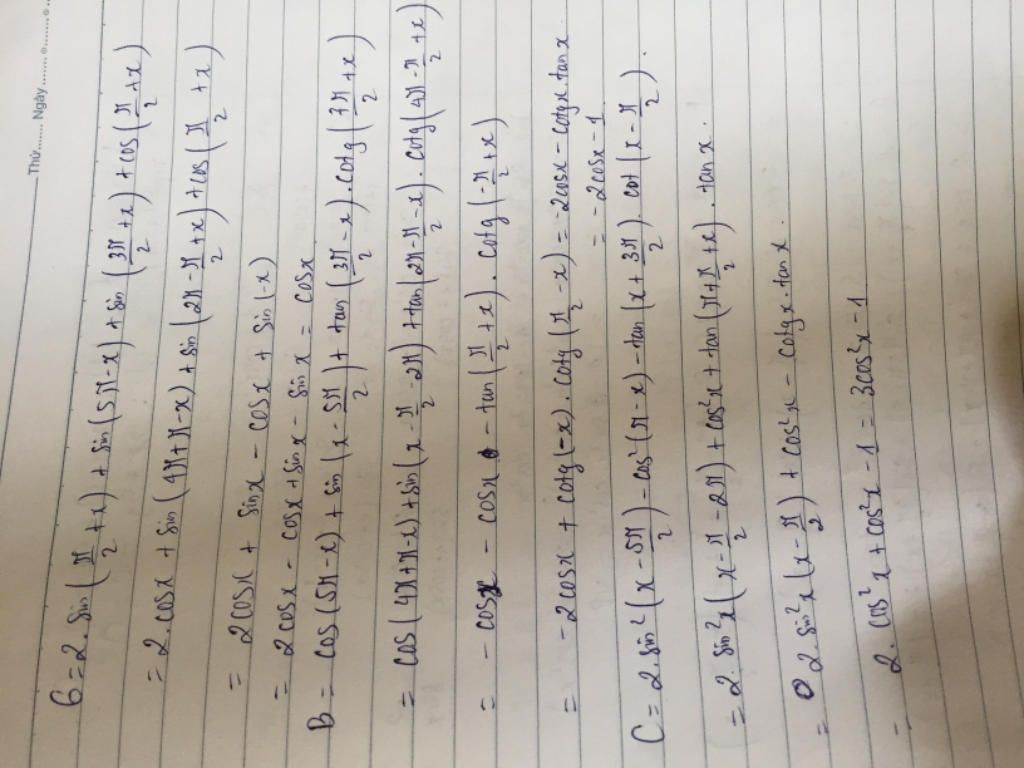 Thứ........ Ngày........
6 = 2. sin(π/2 + x) + sin(5π - x) + sin(3π/2 + x) + cos(π/2 + x)
= 2. cosx + sin(4π + π - x) + sin(2π - π/2 + x) + cos(π/2 + x)
= 2cosx + sinx - cosx + sin(-x)
= 2cosx - cosx + sinx - sinx = cosx
B = cos(5π - x) + sin(x - 5π/2) + tan(3π/2 - x). cotg(7π/2 + x)
= cos(4π + π - x) + sin(x - π/2 - 2π) + tan(2π - π/2 - x). cotg(4π - π/2 + x)
= - cosx - cosx - tan(π/2 + x). cotg(-π/2 + x)
= - 2cosx + cotg(-x). cotg(π/2 - x) = -2cosx - cotgx. tanx
= -2cosx - 1
C = 2. sin²(x - 5π/2) - cos²(π - x) - tan(x + 3π/2). cot(x - π/2).
= 2. sin²x(x - π/2 - 2π) + cos²x + tan(π + π/2 + x). tanx.
= 2. sin²x(x - π/2) + cos²x - cotgx. tanx.
= 2. cos²x + cos²x - 1 = 3cos²x - 1